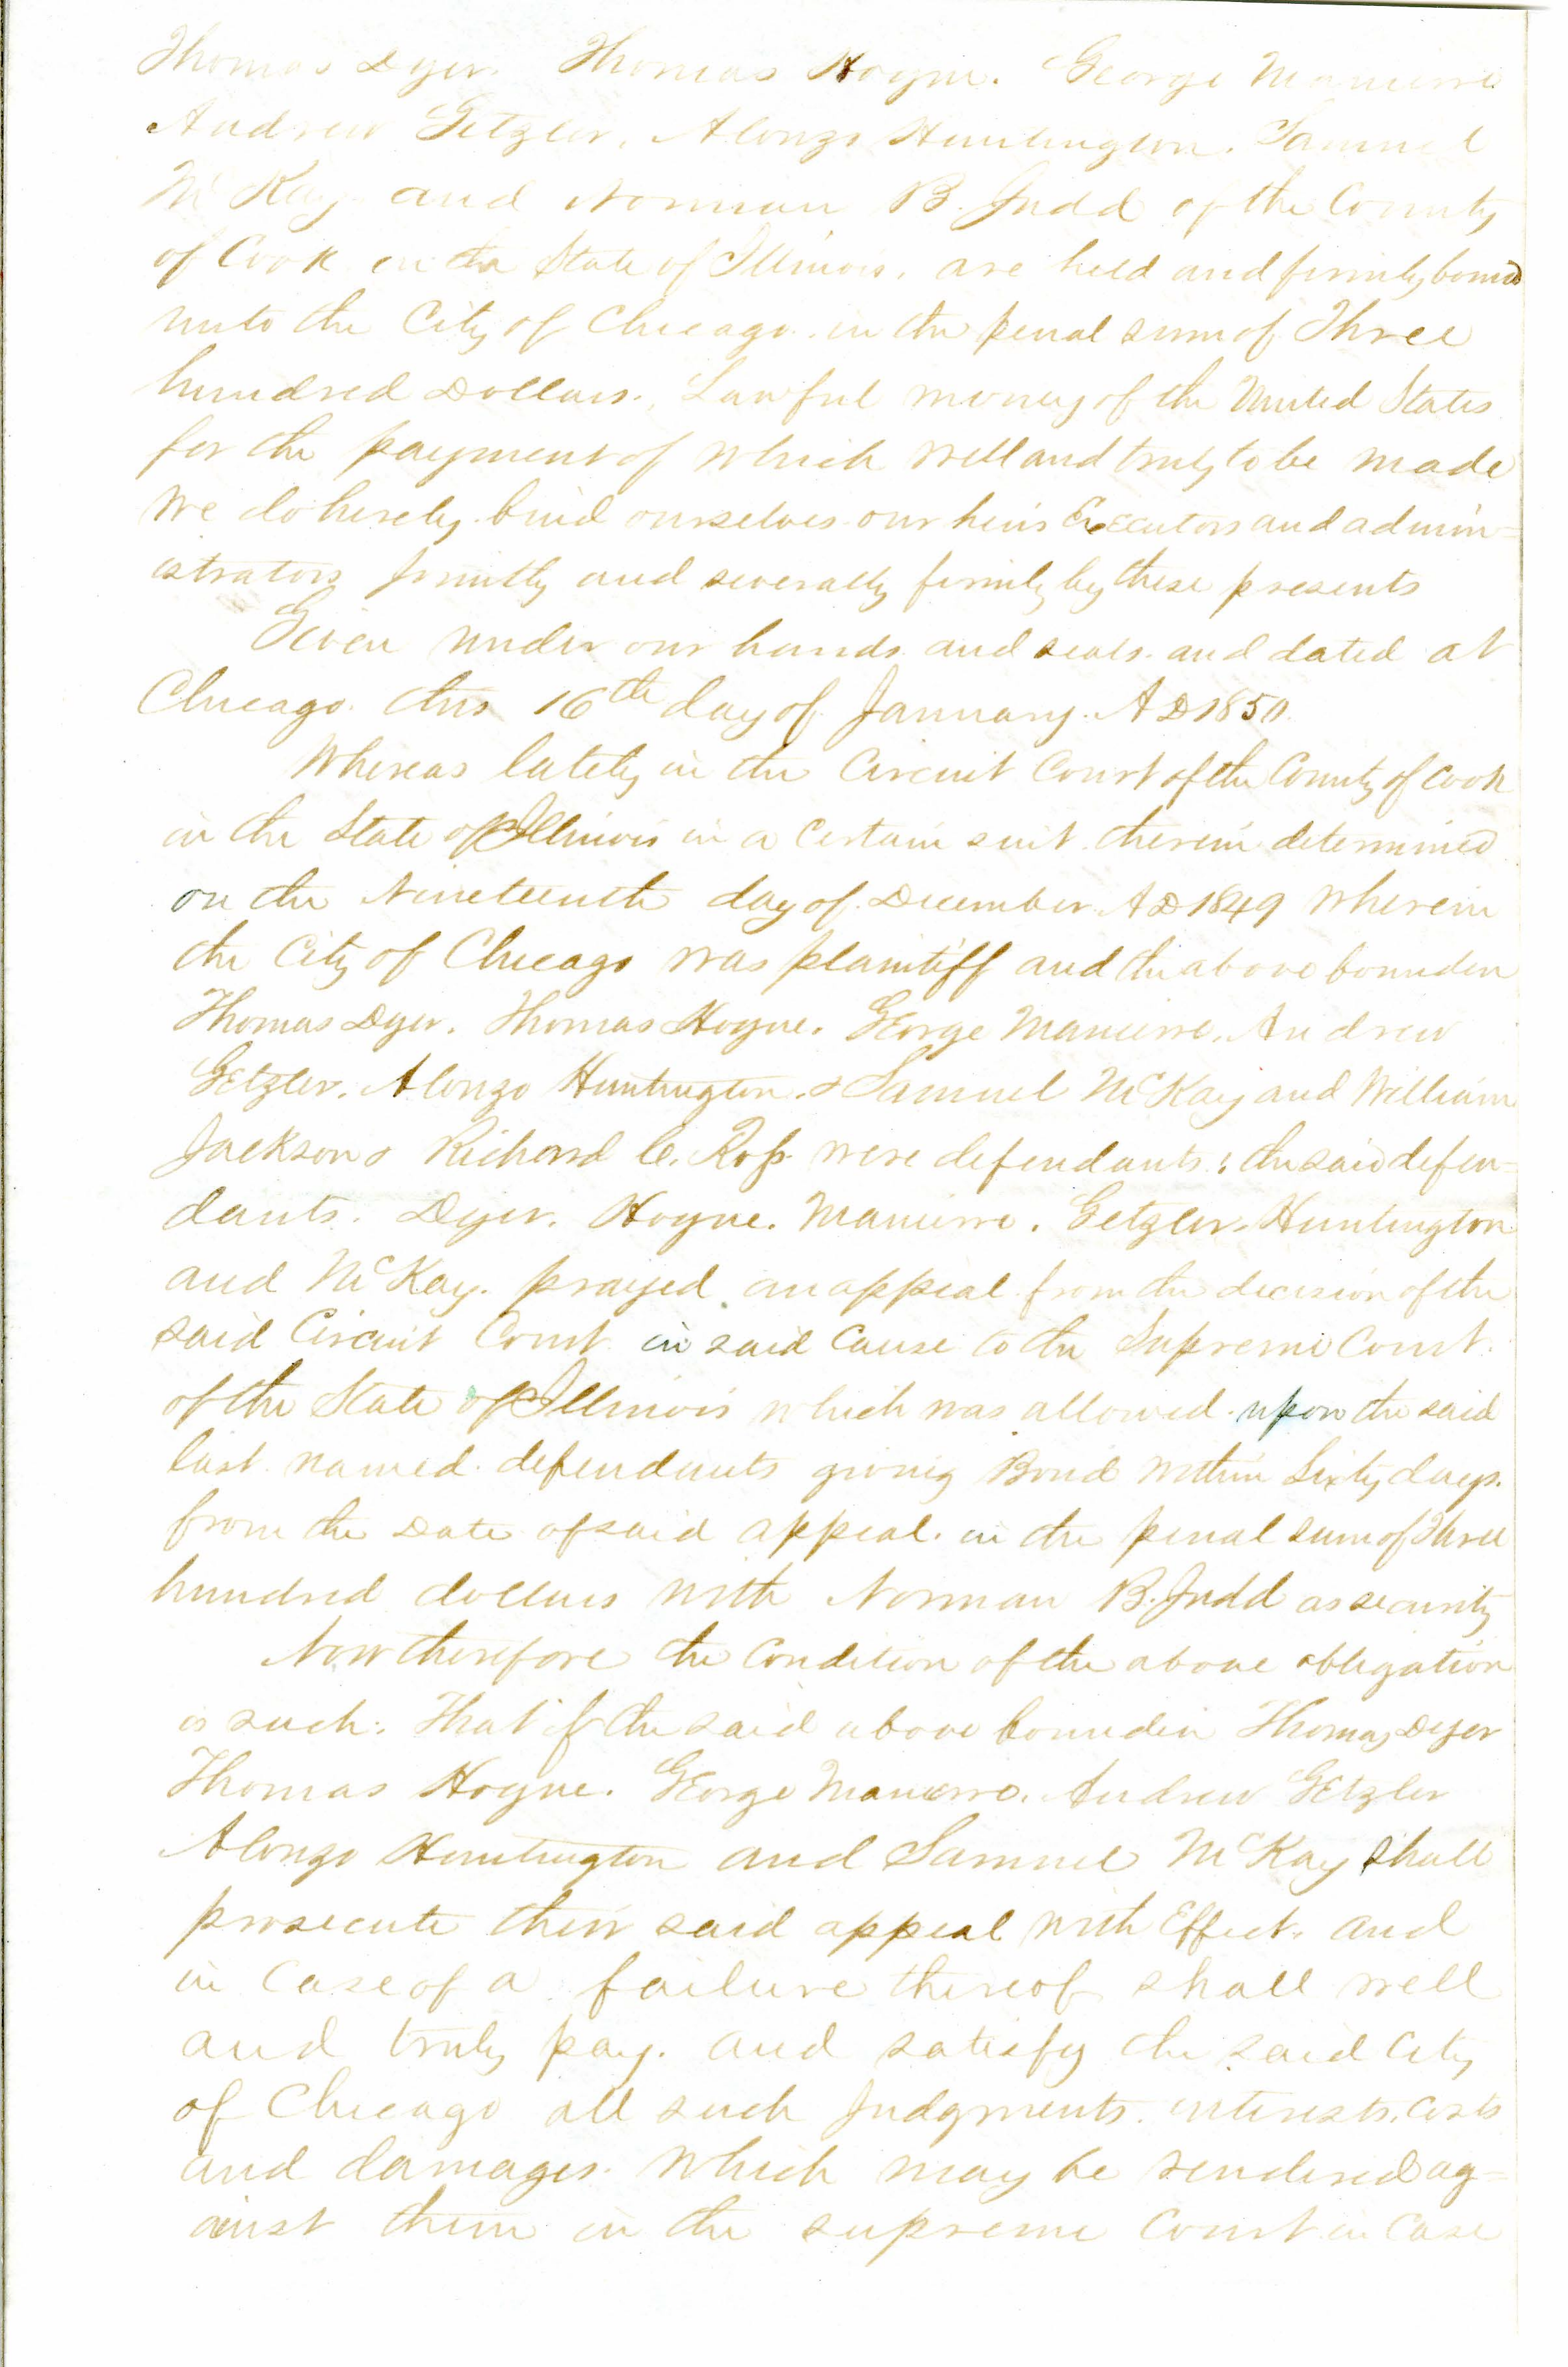 Thomas Dyer. Thomas Hoyne. George Manierre
Andrew Getzler, Alonzo Huntington. Samuel
McKay and Norman B. Judd of the County
of Cook in the State of Illinois. are held and firmly bound
unto the City of Chicago. in the penal sum of Three
hundred Dollars. Lawful money of the United States
for the payment of which well and truly to be made
we do hereby bind ourselves our heirs Executors and admin=
istrators jointly and severally firmly by these presents
Given under our hands and seals. and dated at
Chicago. this 16th day of January. AD 1850.
Whereas lately in the Circuit Court of the County of Cook
in the State of Illinois in a certain suit therein determined
on the Nineteenth day of December AD 1849 wherein
the City of Chicago was plaintiff and the above bounden
Thomas Dyer. Thomas Hoyne. George Manierre. Andrew
Getzler. Alonzo Huntington. & Samuel McKay and William
Jackson & Richard C. Ross were defendants; the said defen=
dants. Dyer. Hoyne. Manierre. Getzler. Huntington
and McKay. prayed an appeal from the decision of the
said Circuit Court in said Cause to the Supreme Court.
of the State of Illinois which was allowed upon the said
last named defendants giving Bond within Sixty days.
from the Date of said appeal. in the penal sum of Three
hundred dollars with Norman B. Judd as security
Now therefore the Condition of the above obligation
is such: That if the said above bounden Thomas Dyer
Thomas Hoyne. George Manierre. Andrew Getzler
Alonzo Huntington and Samuel McKay shall
prosecute their said appeal with Effect. and
in Case of a failure thereof shall well
and truly pay. and satisfy the said City
of Chicago all such Judgments. interests. costs
and damages. which may be rendered ag=
ainst them in the supreme Court in Case